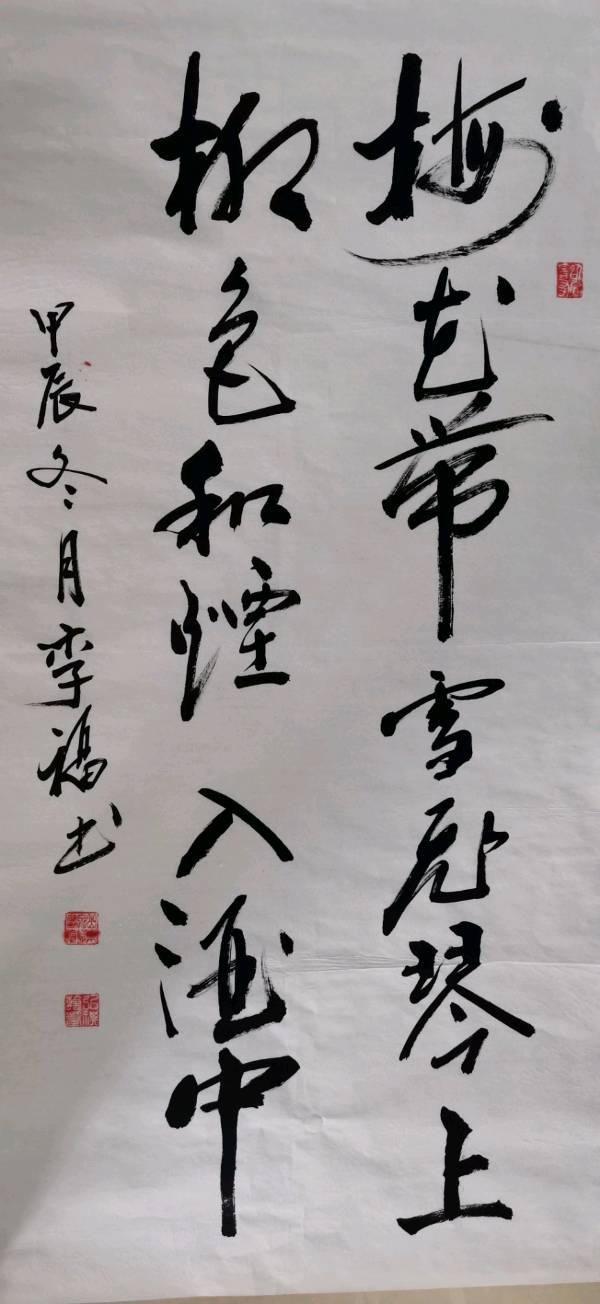 梅花带雪飞琴上
柳色和煙入酒中
甲辰冬月李福书